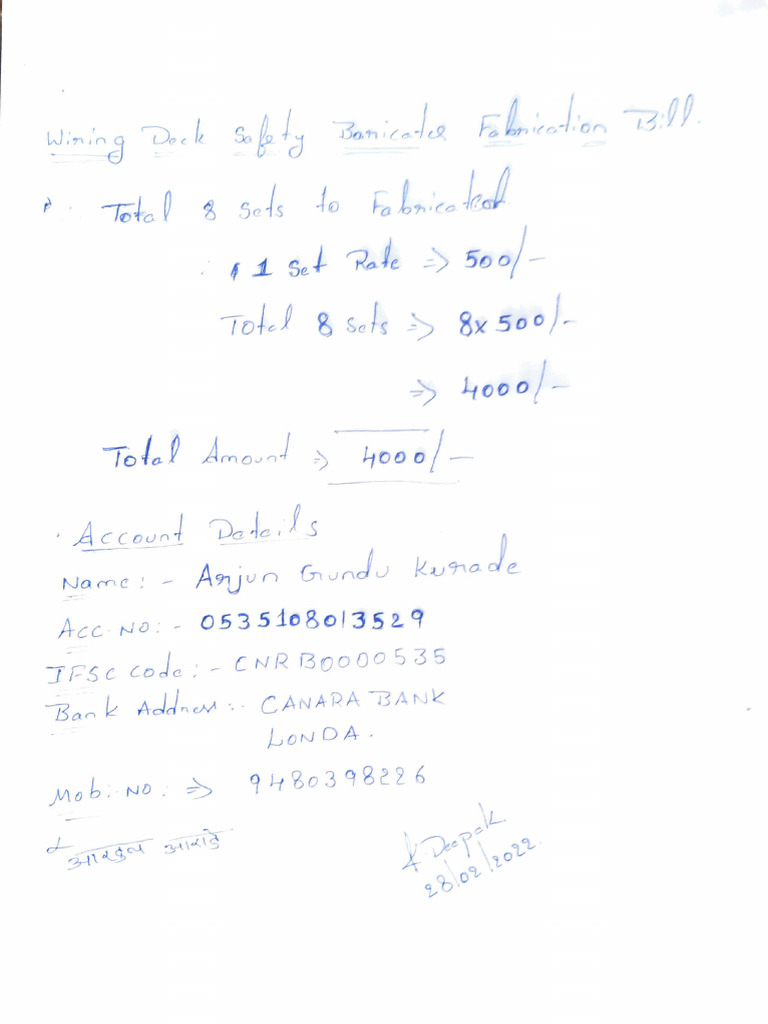 Wining Deck Safety Barricates Fabrication Bill.
Total 8 sets to Fabricated
1 Set Rate => 500/-
Total 8 sets => 8x500/-
=> 4000/-
Total Amount => 4000/-
Account Details
Name:- Arjun Gundu Kurade
Acc.No:- 0535108013529
IFSC Code:- CNRB0000535
Bank Address:- CANARA BANK
LONDA.
Mob: No: => 9480398226
Deepak
28/02/2022.